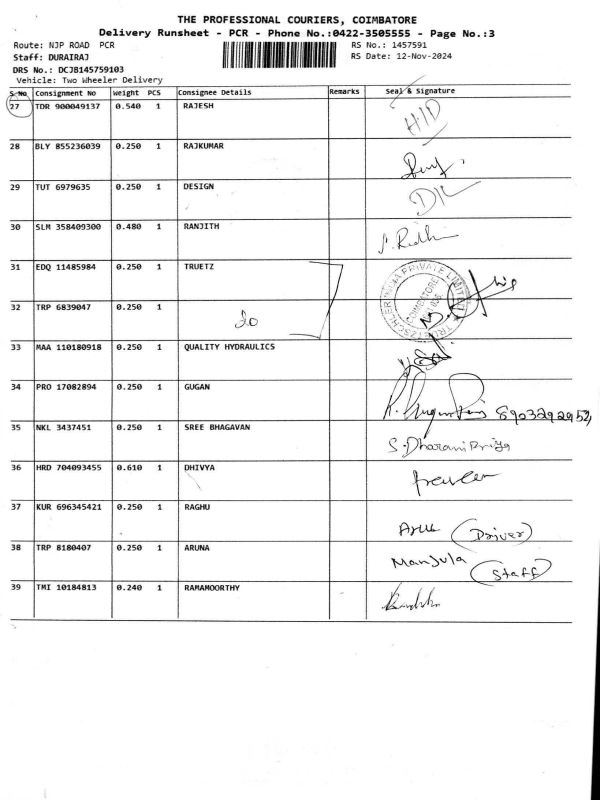 THE PROFESSIONAL COURIERS, COIMBATORE
Delivery Runsheet - PCR - Phone No.:0422-3505555 - Page No.:3
Route: NJP ROAD PCR RS No.: 1457591
Staff: DURAIRAJ RS Date: 12-Nov-2024
DRS No.: DCJB145759103
Vehicle: Two Wheeler Delivery
S.No. Consignment No Weight PCS Consignee Details Remarks Seal & Signature
27 TDR 900049137 0.540 1 RAJESH
28 BLY 855236039 0.250 1 RAJKUMAR
29 TUT 6979635 0.250 1 DESIGN
30 SLM 358409300 0.480 1 RANJITH
31 EDQ 11485984 0.250 1 TRUETZ
32 TRP 6839047 0.250 1
20
33 MAA 110180918 0.250 1 QUALITY HYDRAULICS
34 PRO 17082894 0.250 1 GUGAN
35 NKL 3437451 0.250 1 SREE BHAGAVAN S. Dharani Priya
36 HRD 704093455 0.610 1 DHIVYA
37 KUR 696345421 0.250 1 RAGHU (Driver)
38 TRP 8180407 0.250 1 ARUNA Manjula (Staff)
39 TMI 10184813 0.240 1 RAMAMOORTHY